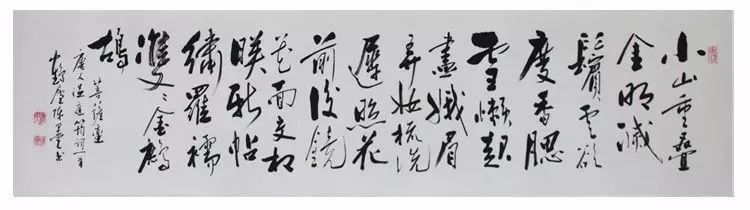 小山重疊
金明滅
鬢雲欲
度香腮
雪懶起
畫蛾眉
弄妝梳洗
遲照花
前後鏡
花面交相
映新帖
繡羅襦
雙〻金鷓
鴣
菩薩蠻
唐人溫庭筠詞一首
陳墨書